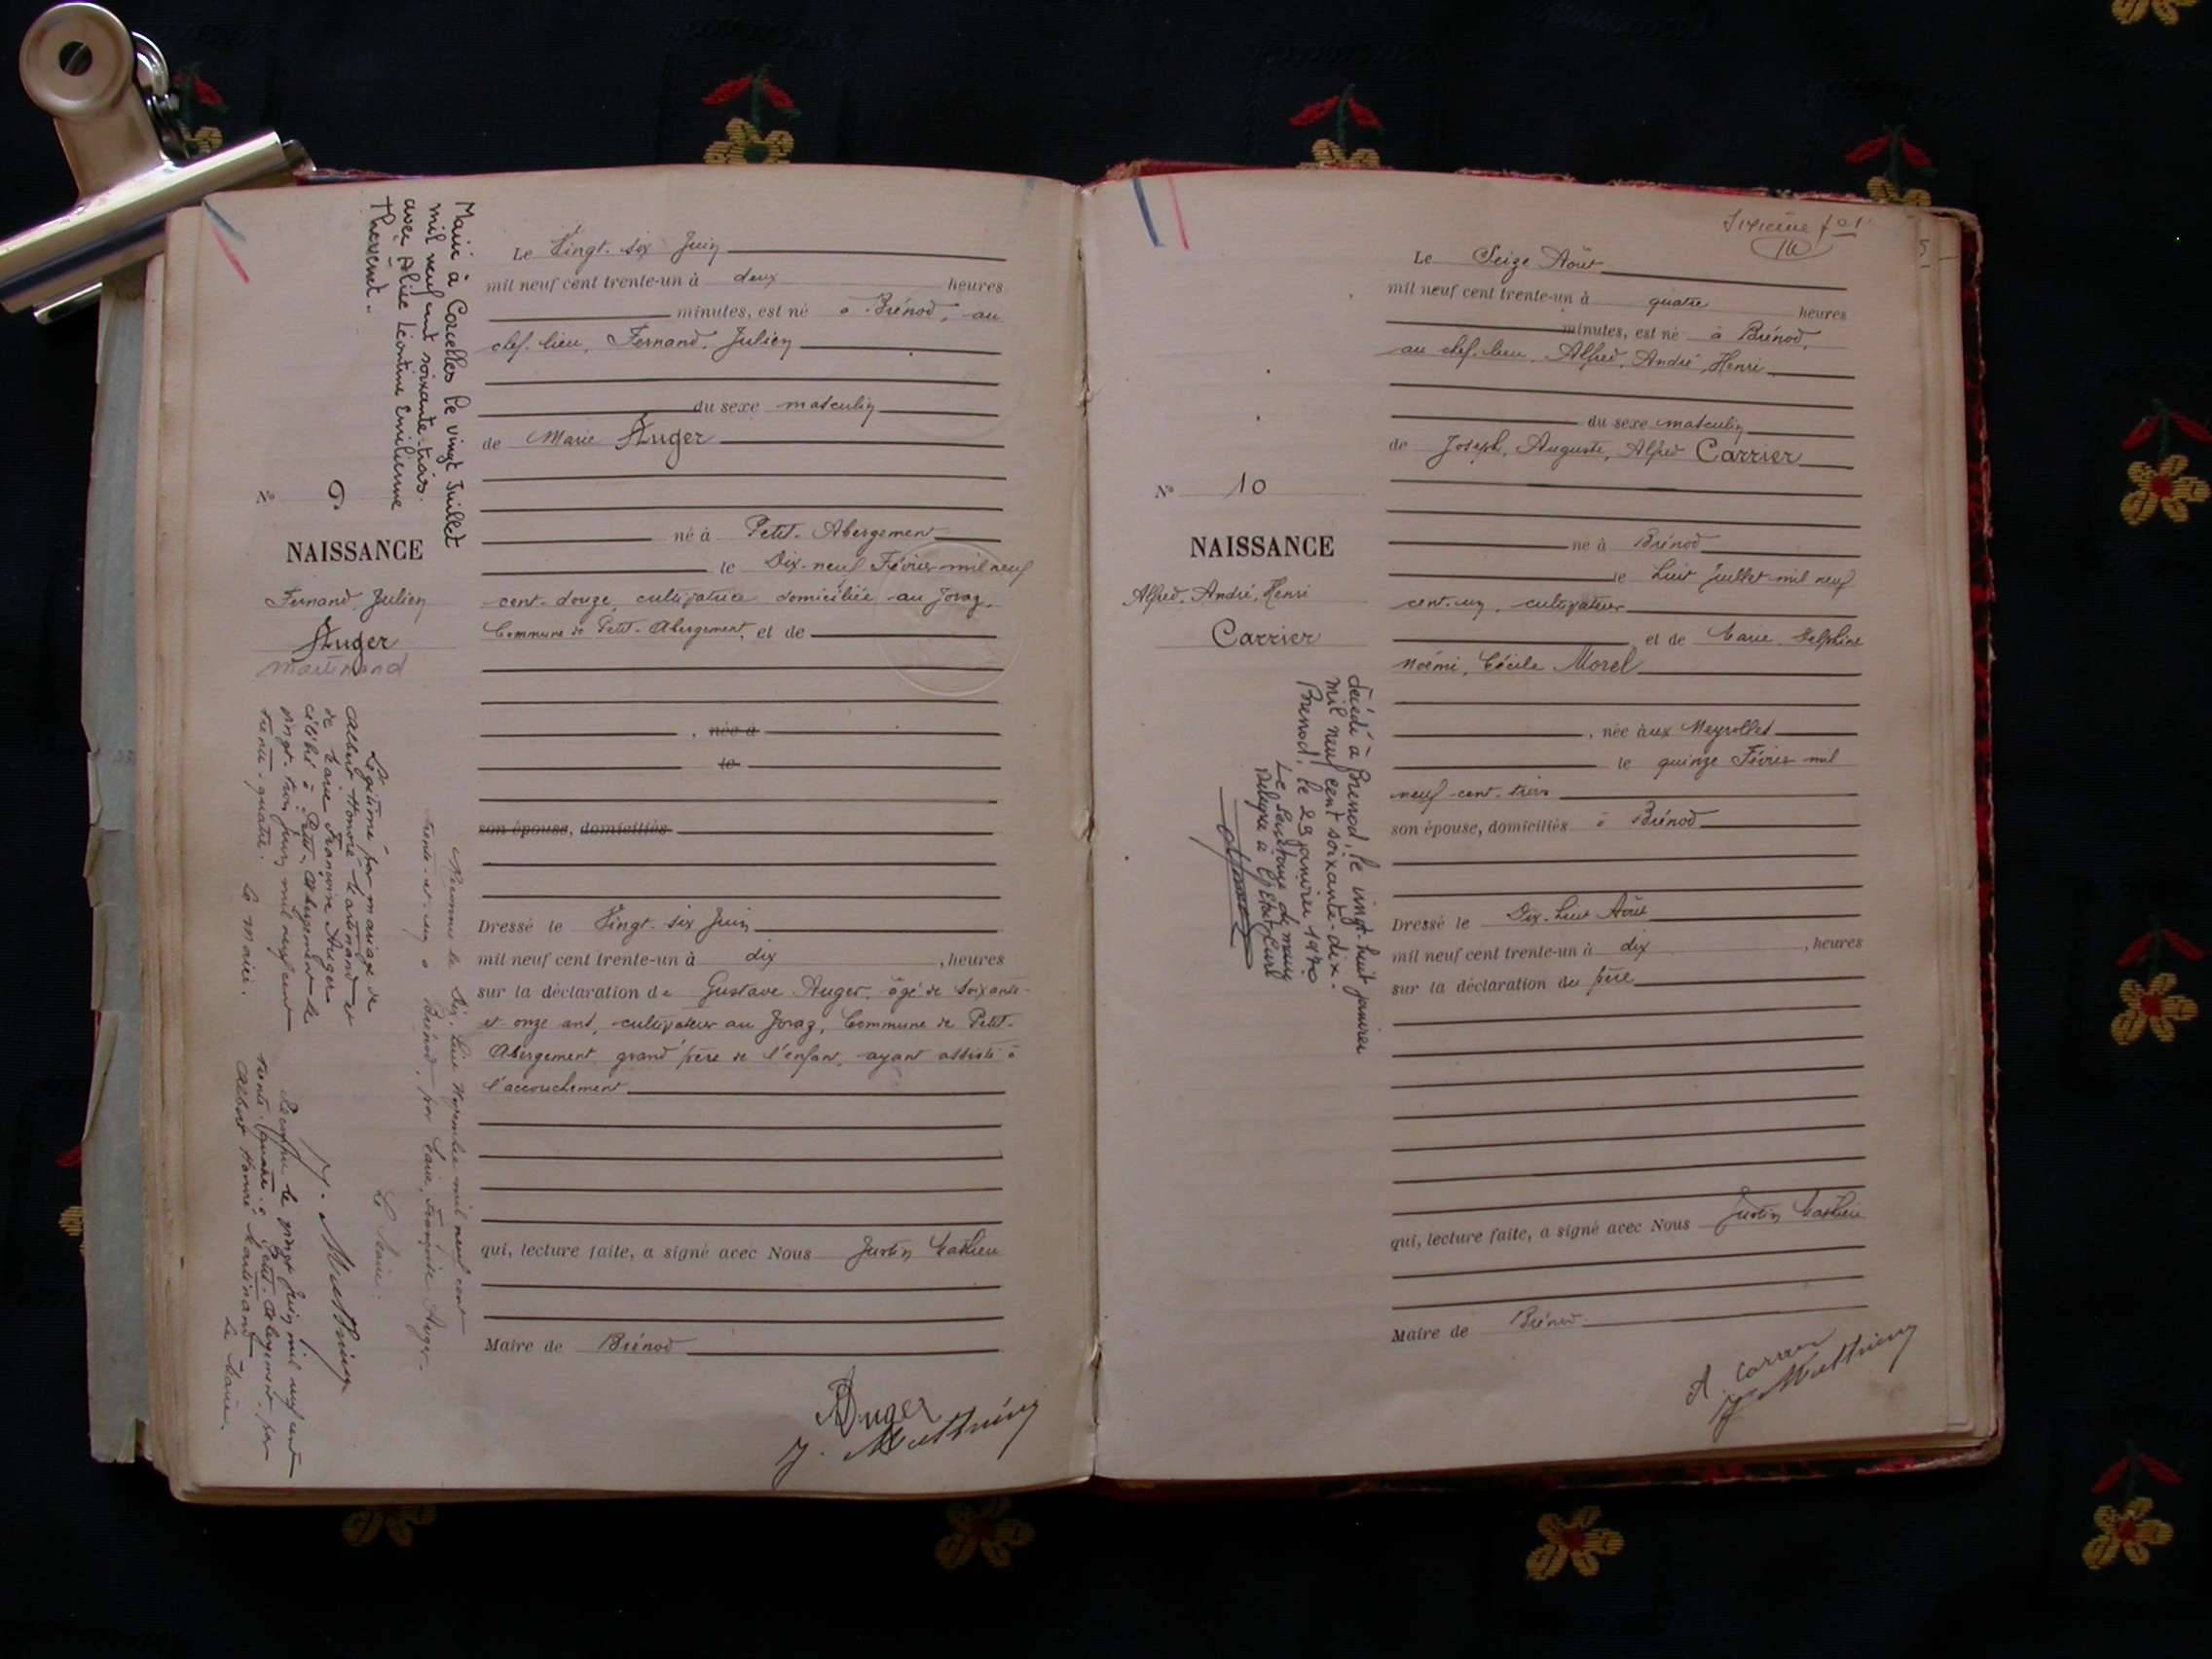 Le Vingt-six Juin
mil neuf cent trente-un à deux heures
minutes, est né à Brénod, au
chef-lieu, Fernand, Julien
du sexe masculin
de Marie Auger
né à Petit-Abergement
le Dix-neuf Février mil neuf
cent-douze, cultivatrice domiciliée au Jorag,
Commune de Petit-Abergement, et de
, née à
le
son épouse, domiciliés
Dressé le Vingt-six Juin
mil neuf cent trente-un à dix , heures
sur la déclaration de Gustave Auger, âgé de soixante-
et onze ans, cultivateur au Jorag, Commune de Petit-
Abergement, grand'père de l'enfant, ayant assisté à
l'accouchement
qui, lecture faite, a signé avec Nous Justin Mathieu
Maire de Brénod
Auger
Marié à Corcelles le vingt Juillet
mil neuf cent soixante-trois
avec Alice Léontine Emilienne
Thévenet.
N° 9
NAISSANCE
Fernand, Julien
Auger
Martinand
Légitimé par mariage de
Albert Honoré Martinand et
de Marie Françoise Auger
célébré à Petit-Abergement le
vingt-trois Juin mil neuf cent
trente-quatre. Le Maire.
Reconnu le Dix-huit Novembre mil neuf cent
trente-et-un à Brénod, par Marie, Françoise Auger.
Le Maire:
Reconnu le vingt Juin mil neuf cent
trente-quatre à Petit-Abergement par
Albert Honoré Martinand
Le Maire.
Le Seize Août
mil neuf cent trente-un à quatre heures
minutes, est né à Brénod,
au chef-lieu, Alfred, André, Henri
du sexe masculin
de Joseph, Auguste, Alfred Carrier
né à Brénod
le huit Juillet mil neuf
cent-un, cultivateur
et de Marie Delphine
Noémi, Cécile Morel
, née aux Meyrolles
le quinze Février mil
neuf-cent-trois
son épouse, domiciliés à Brénod
Dressé le Dix-huit Août
mil neuf cent trente-un à dix , heures
sur la déclaration du père
qui, lecture faite, a signé avec Nous Justin Mathieu
Maire de Brénod
A Carrier
N° 10
NAISSANCE
Alfred, André, Henri
Carrier
décédé à Brenod, le vingt-huit janvier
mil neuf cent soixante-dix.
Brenod, le 29 janvier 1970